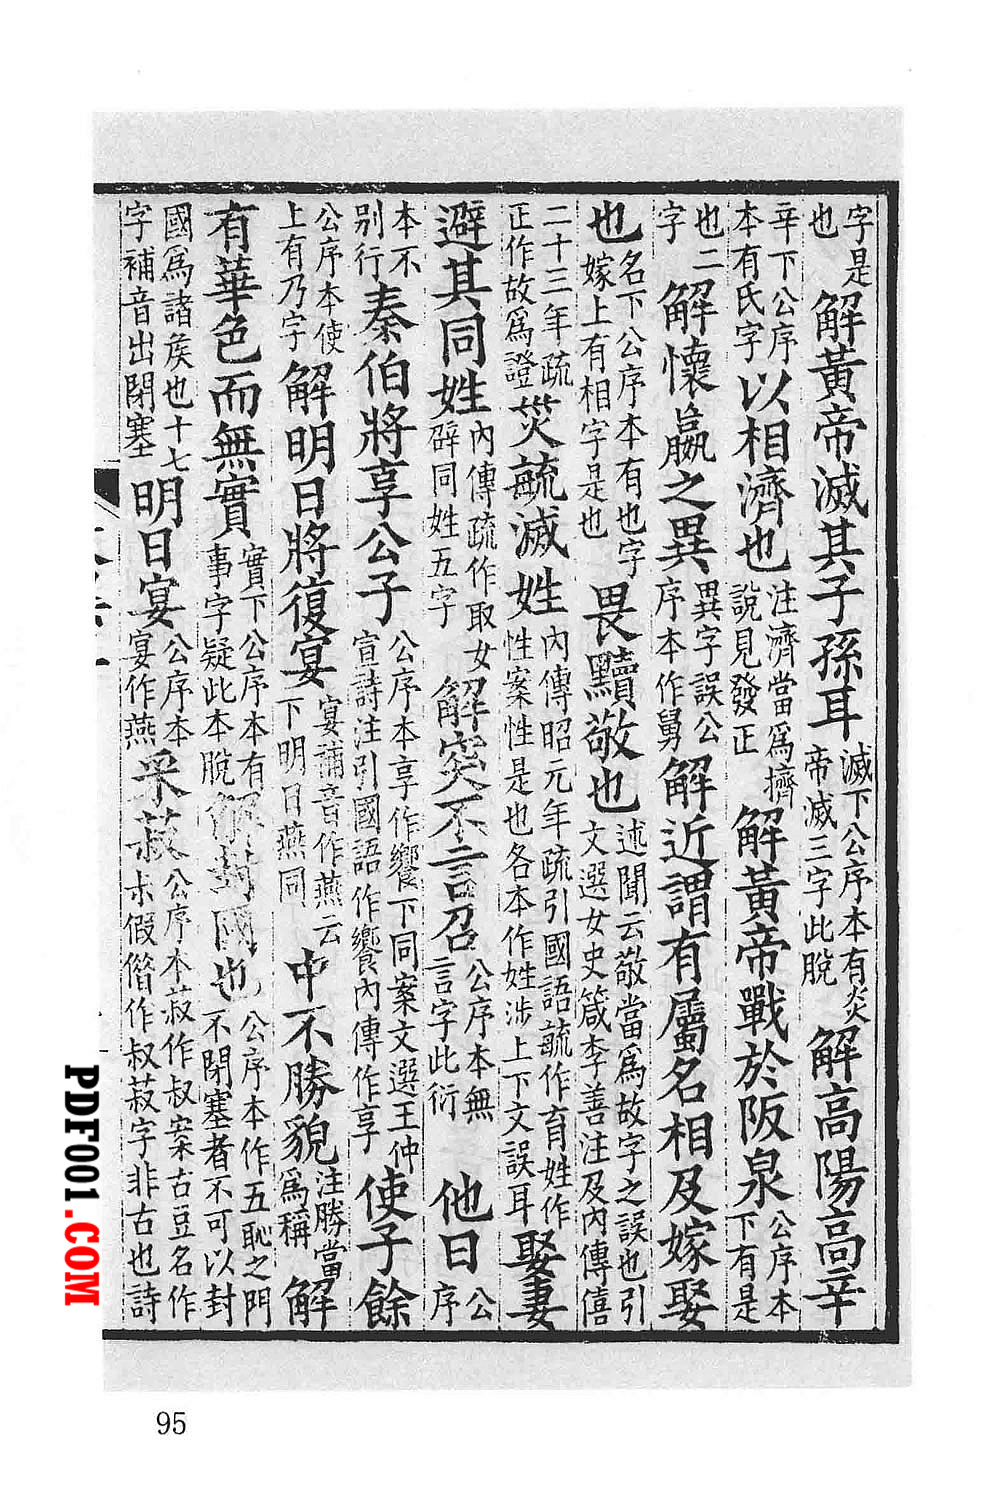 字是也解黃帝滅其子孫耳滅下公序本有炎帝滅三字此脫解高陽高辛
辛下公序本有氏字以相濟也注濟當爲擠說見發正解黃帝戰於阪泉公序本下有是
也二字解懷嬴之異異字誤公序本作舅解近謂有屬名相及嫁娶
也名下公序本有也字嫁上有相字是也畏黷敬也述聞云敬當爲故字之誤也引文選女史箴李善注及內傳僖
二十三年疏正作故爲證災毓滅姓內傳昭元年疏引國語毓作育姓作性案性是也各本作姓涉上下文誤耳娶妻
避其同姓內傳疏作取女辟同姓五字解災不言召公序本無言字此衍他日公序
本不別行秦伯將享公子公序本享作饗下同案文選王仲宣詩注引國語作饗內傳作享使子餘
公序本使上有乃字解明日將復宴宴補音作燕云下明日燕同中不勝貌注勝當爲稱解
有華色而無實實下公序本有事字疑此本脫解封國也公序本作五恥之門不閉塞者不可以封
國爲諸矦也十七字補音出閉塞明日宴公序本宴作燕采菽公序本菽作叔案古豆名作尗假偺作叔菽字非古也詩
PDF001.COM
95